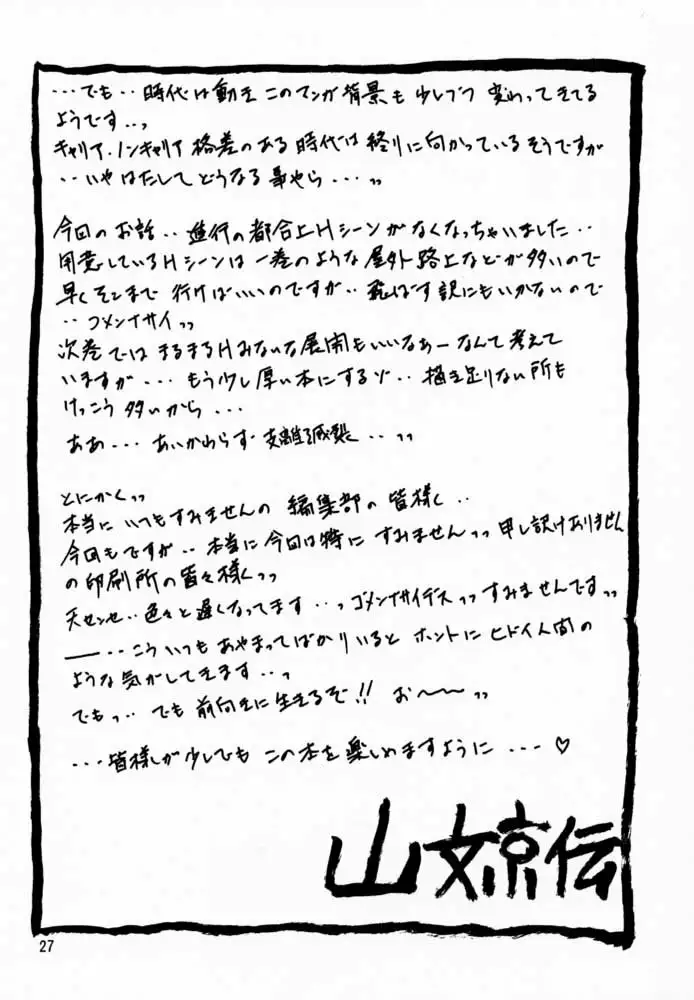 ・・・でも・・時代は動き このマンガ背景も少しづつ 変わってきてる
ようです・・っ
キャリア・ノンキャリア格差のある時代は終りに向かっているそうですが
・・いやはたしてどうなる事やら・・・〃
今回のお話・・進行の都合上Hシーンがなくなっちゃいました・・
用意しているHシーンは一巻のような屋外路上などが多いので
早くそこまで行けばいいのですが・・飛ばす訳にもいかないので
・・コメンナサイ〃
次巻ではまるまるHみないな展開もいいなぁーなんて考えて
いますが・・・もう少し厚い本にするゾ・・描き足りない所も
けっこう多いから・・・
ああ・・・あいかわらず支離滅裂・・〃
とにかく〃
本当にいつもすみませんの編集部の皆様く・・
今回もですが・・本当に今回は特にすみません〃申し訳けありません
の印刷所の皆々様く〃
天センセ・・色々と遅くなってます・・っゴメンナサイデス〃すみませんです〃
――・・こういつもあやまってばかりいるとホントにヒドイ人間の
ような気がしてきます・・っ
でもっ・・でも前向きに生きるぞ!!お〜〜〃
・・・皆様しが少しでもこの本を楽しめますように・・・♡
27